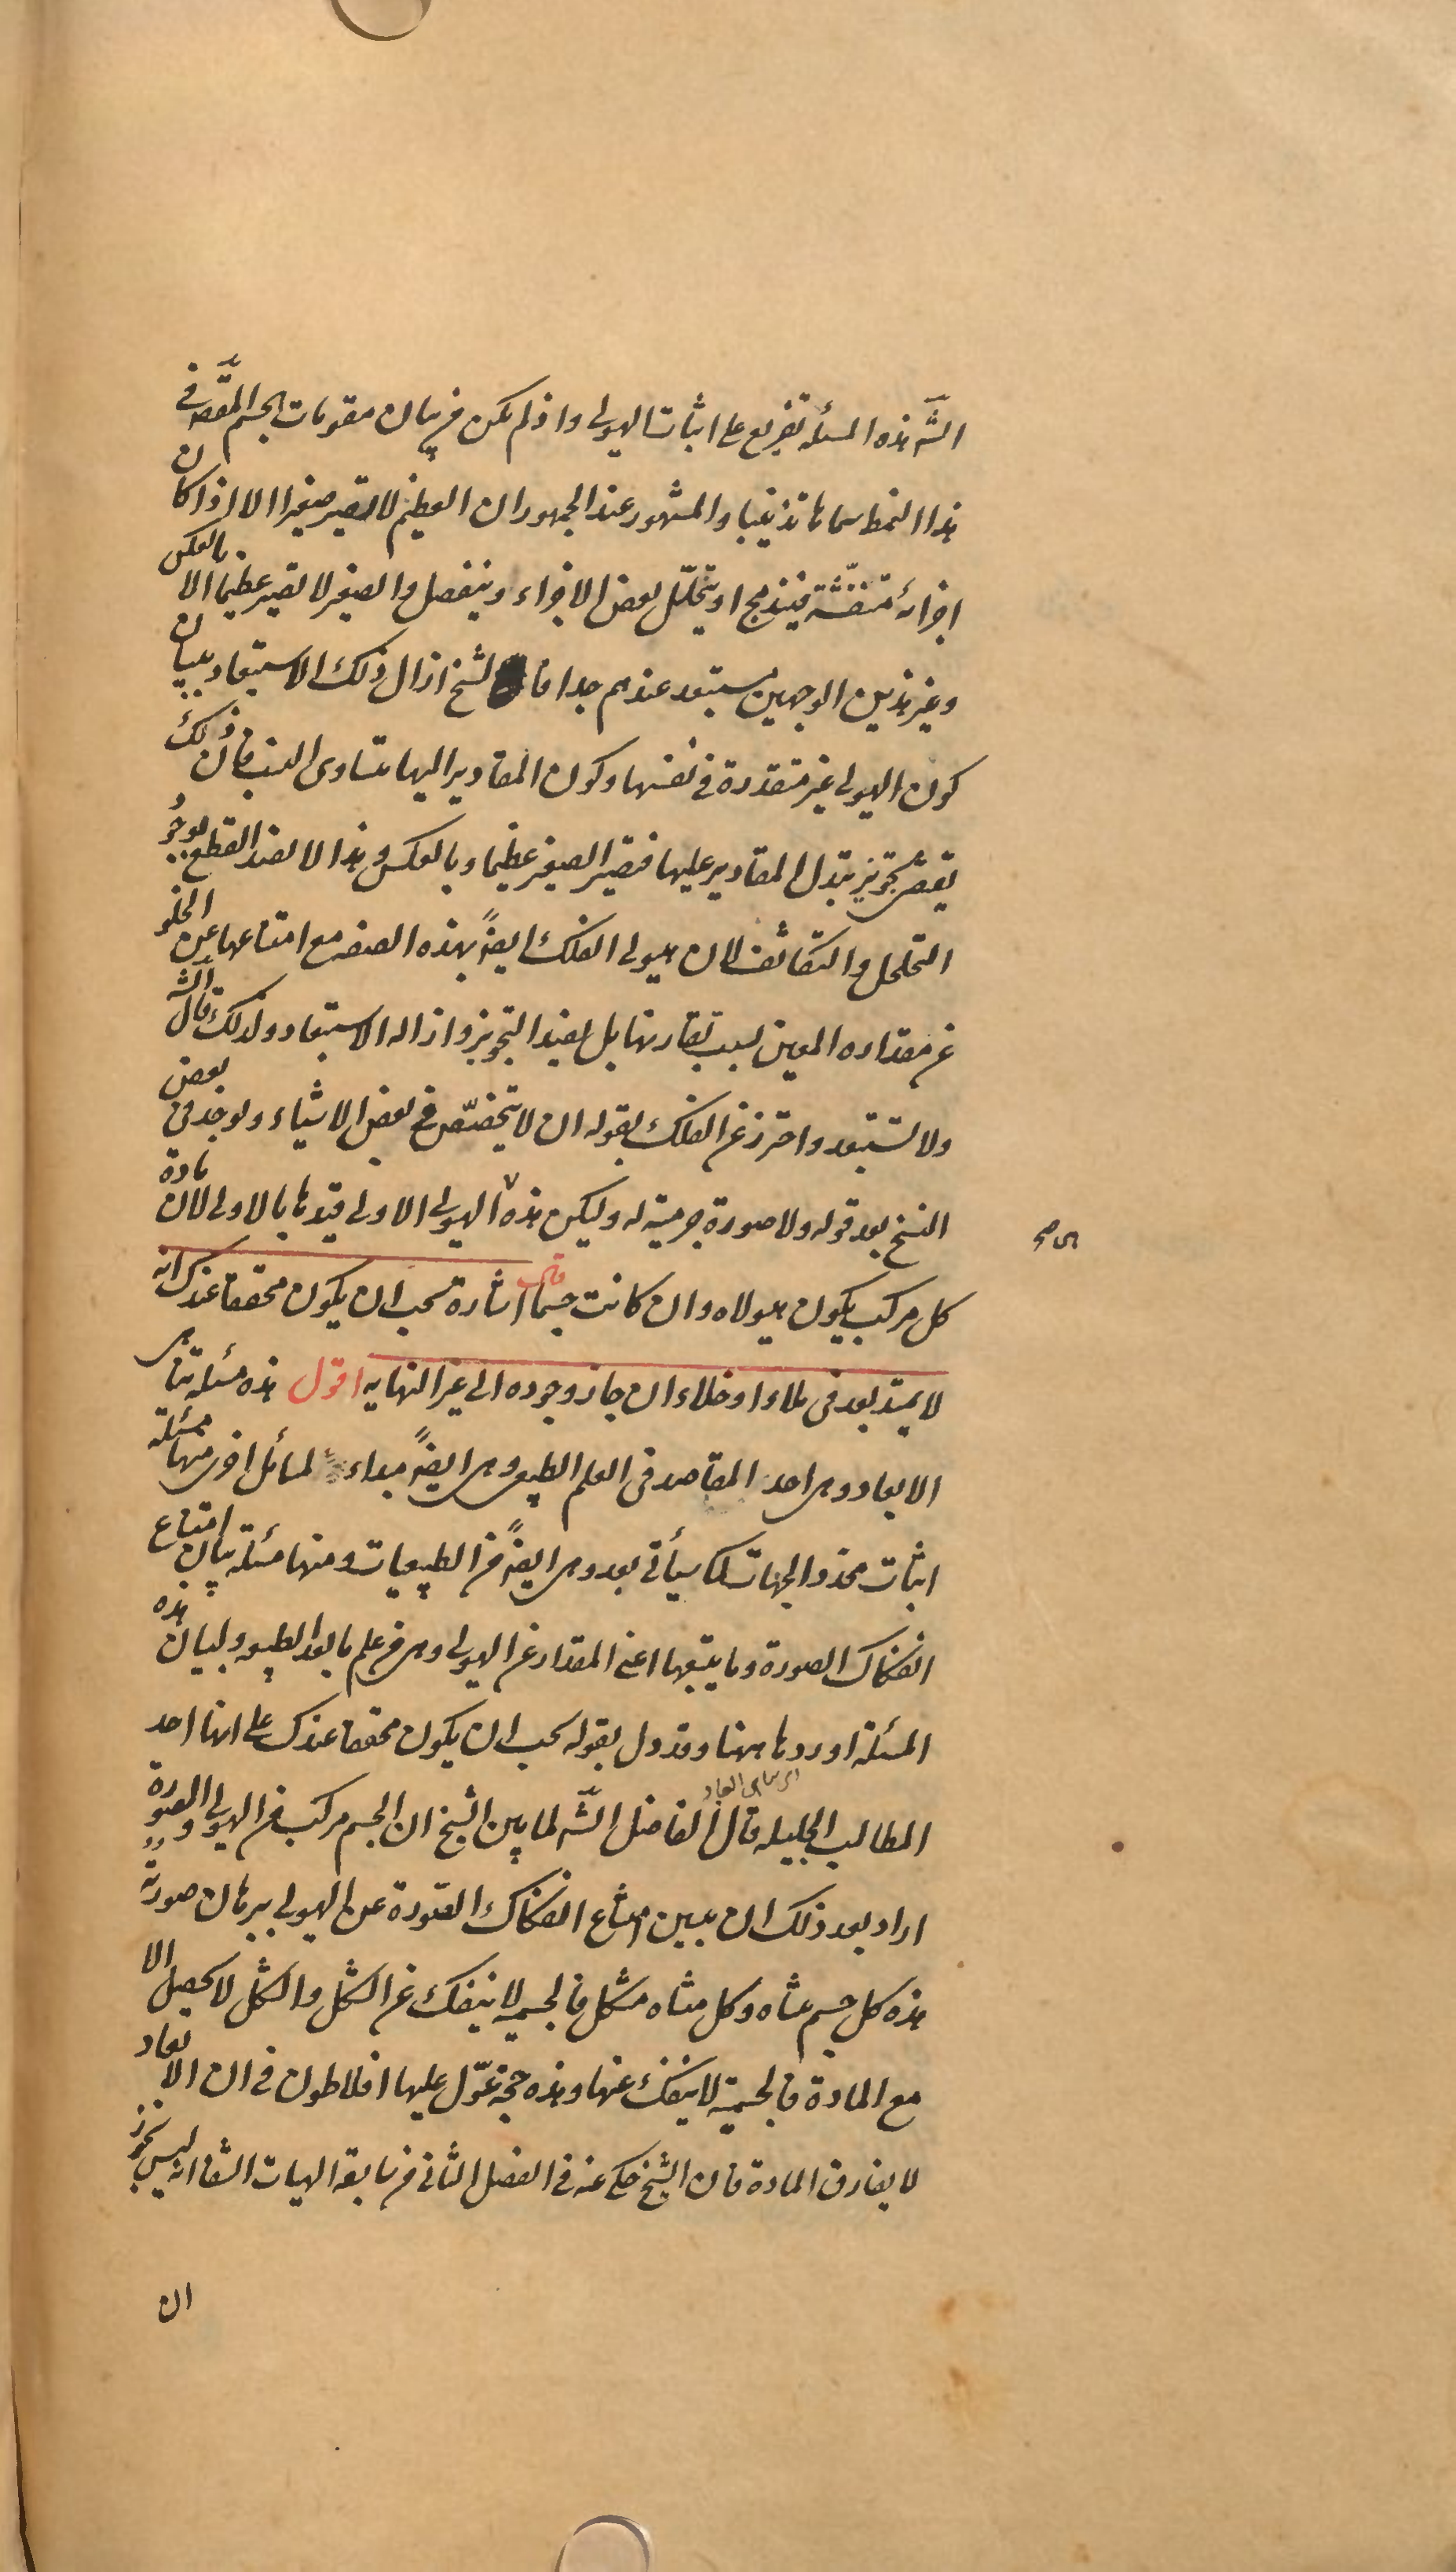 الشّه هذه المسئله تفريع على اثبات الهيولى واذ لم يكن فى بيان مقومات الجسم المقصّه فى
هذا النمط سماها تذنيبا والمشهور عند الجمهور ان العظيم لا يصير صغيرا الا اذا كان
اجزائه منتفشّة فيندمج او يتحلّل بعض الاجزاء وينفصل والصغير لا يصير عظيما الا بالعكس
وغير هذين الوجهين مستبعد عندهم جدا فا لشيخ ازال ذلك الاستبعاد ببيان
كون الهيولى غير متقدرة فى نفسها وكون المقادير اليها متساوى النسب فان ذلك
يقتضى تجويز تبدل المقادير عليها فتصير الصغير عظيما وبالعكس وهذا لا يفيد القطع بوجود
التخلخل والتكاثف لان هيولى الفلك ايضًا بهذه الصفه مع امتناعها عن الخلو
عن مقداره المعين لسبب يقارنها بل يفيد التجويز وازاله الاستبعاد ولذلك قال الشّه
ولا تستبعد واحترز عن الفلك بقوله ان لا يتخصّص فى بعض الاشياء ويوجد فى بعض
النسخ بعد قوله ولا صورة جرمية له وليكن هذه الهيولى الاولى قيدها بالاولى لان مادة
كل مركب يكون هيولاه وان كانت جسما قال اشارة يجب ان يكون محققا عندك انه
لا يمتد بعد فى ملاء او خلاء ان جاز وجوده الى غير النهايه اقول هذه مسئله تناهى
الابعاد وهى احد المقاصد فى العلم الطبيعى وهى ايضًا مبداء لمسائل اخرى منها مسئلة
اثبات محدد الجهات كما سيأتى بعد وهى ايضًا من الطبيعيات ومنها مسئلة بيان امتناع
انفكاك الصورة وما يتبعها اعنى المقدار عن الهيولى وهى من علم ما بعد الطبيعه ولبيان هذه
المسئلة اوردها ههنا وقد دل بقوله يجب ان يكون محققا عندك على انها احد
المطالب الجليله قال الفاضل الشّه لما بين الشيخ ان الجسم مركب من الهيولى والصورة
اراد بعد ذلك ان يبين امتناع انفكاك الصورة عن الهيولى ببرهان صورته
هذه كل جسم متناه وكل متناه مشكل فالجسميه لا ينفك عن الشكل والشكل لا يحصل الا
مع المادة فالجسمية لا ينفك عنها وهذه حجة عوّل عليها افلاطون فى ان الابعاد
لا يفارق المادة فان الشيخ حكى عنه فى الفصل الثانى من سابعة الهيات الشفا انه ليس يجوز
ان